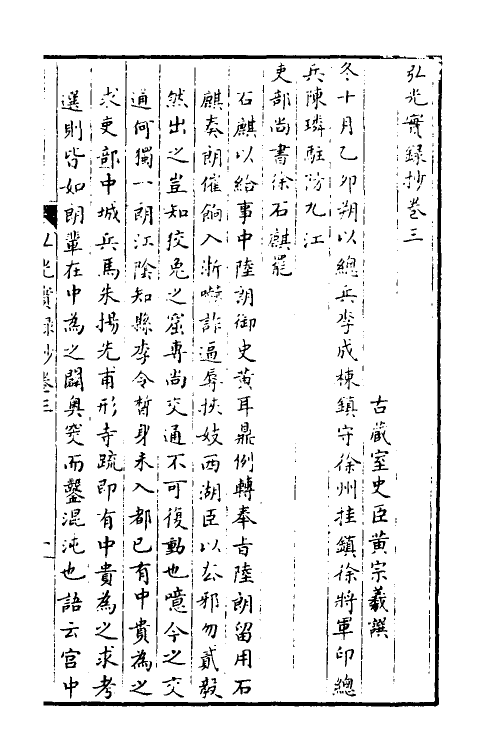 弘光實錄抄卷三
古藏室史臣黃宗羲譔
冬十月乙卯朔以總兵李成棟鎮守徐州挂鎮徐將軍印總
兵陳璘駐防九江
吏部尚書徐石麒罷
石麒以給事中陸朗御史黃耳鼎例轉奉旨陸朗留用石
麒奏朗催餉入浙嚇詐逼辱挾妓西湖臣以去邪勿貳毅
然出之豈知狡兔之窟專尚交通不可復動也噫今之交
通何獨一朗江陰知縣李令晳身未入都已有中貴為之
求吏部中城兵馬朱揚光甫形寺疏即有中貴為之求考
選則皆如朗輩在中為之闢奧窔而鑿混沌也語云官中
弘光實錄抄卷三
一